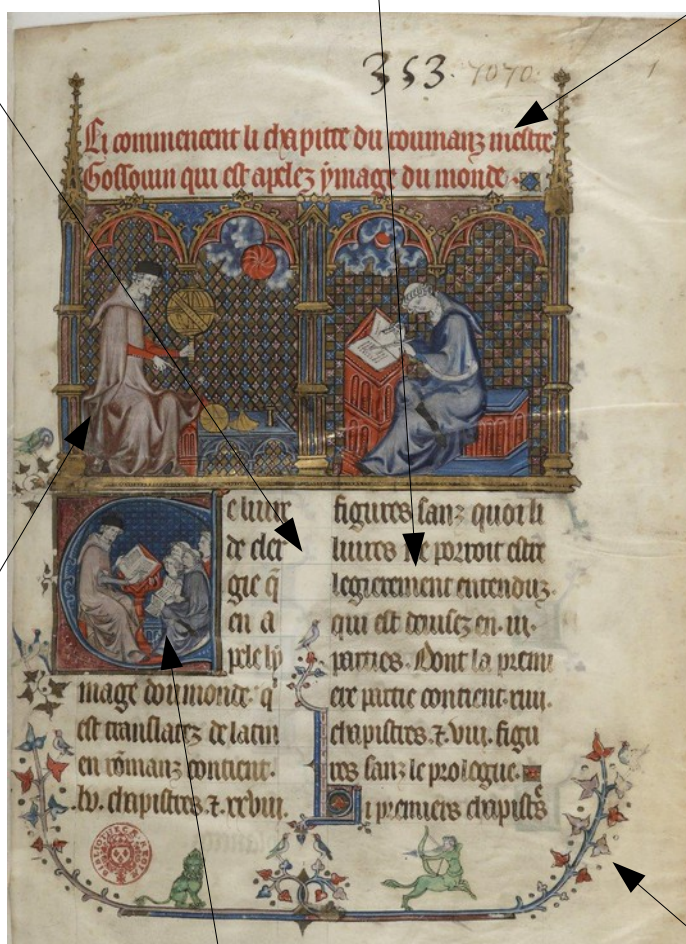 353. 7070. 1
Li commencent li chapitre du roumanz mestre
Gossouin qui est apelez ymage du monde
Ce liure
de cler
gie q̃
en a
pele ly
mage dou monde. q̃
est translatez de latin
en rõmanz contient.
lv. chapistres. ⁊. xxviii.
figures sanz quoi li
liures ne porroit estre
legierement entenduz.
qui est deuisez en. iii.
parties. Dont la premi
ere partie contient. xiiii.
chapistres. ⁊. viii. figu
res sanz le prologue.
Li premiers chapistrẽs